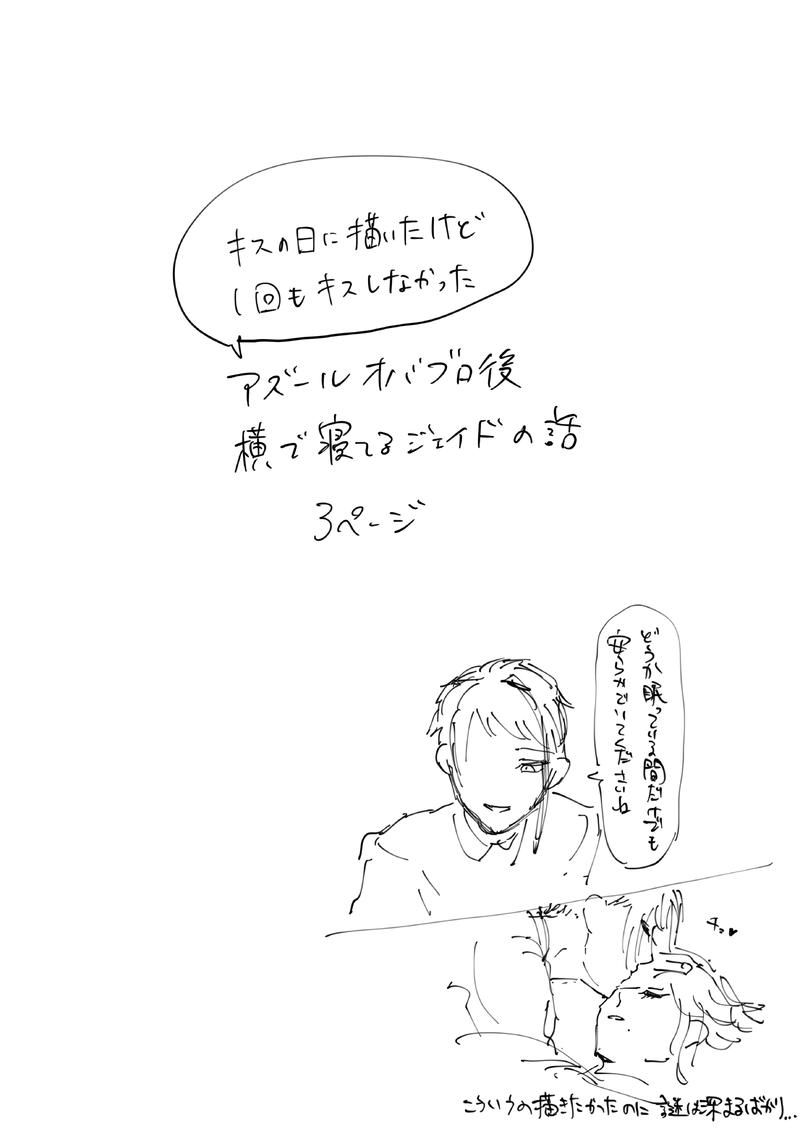 キスの日に描いたけど
1回もキスしなかった
アズールオバブロ後
横で寝てるジェイドの話
3ページ
どうか眠っている間だけでも
安らかでいてくださいね
チュ♥
こういうの描きたかったのに謎は深まるばかり...